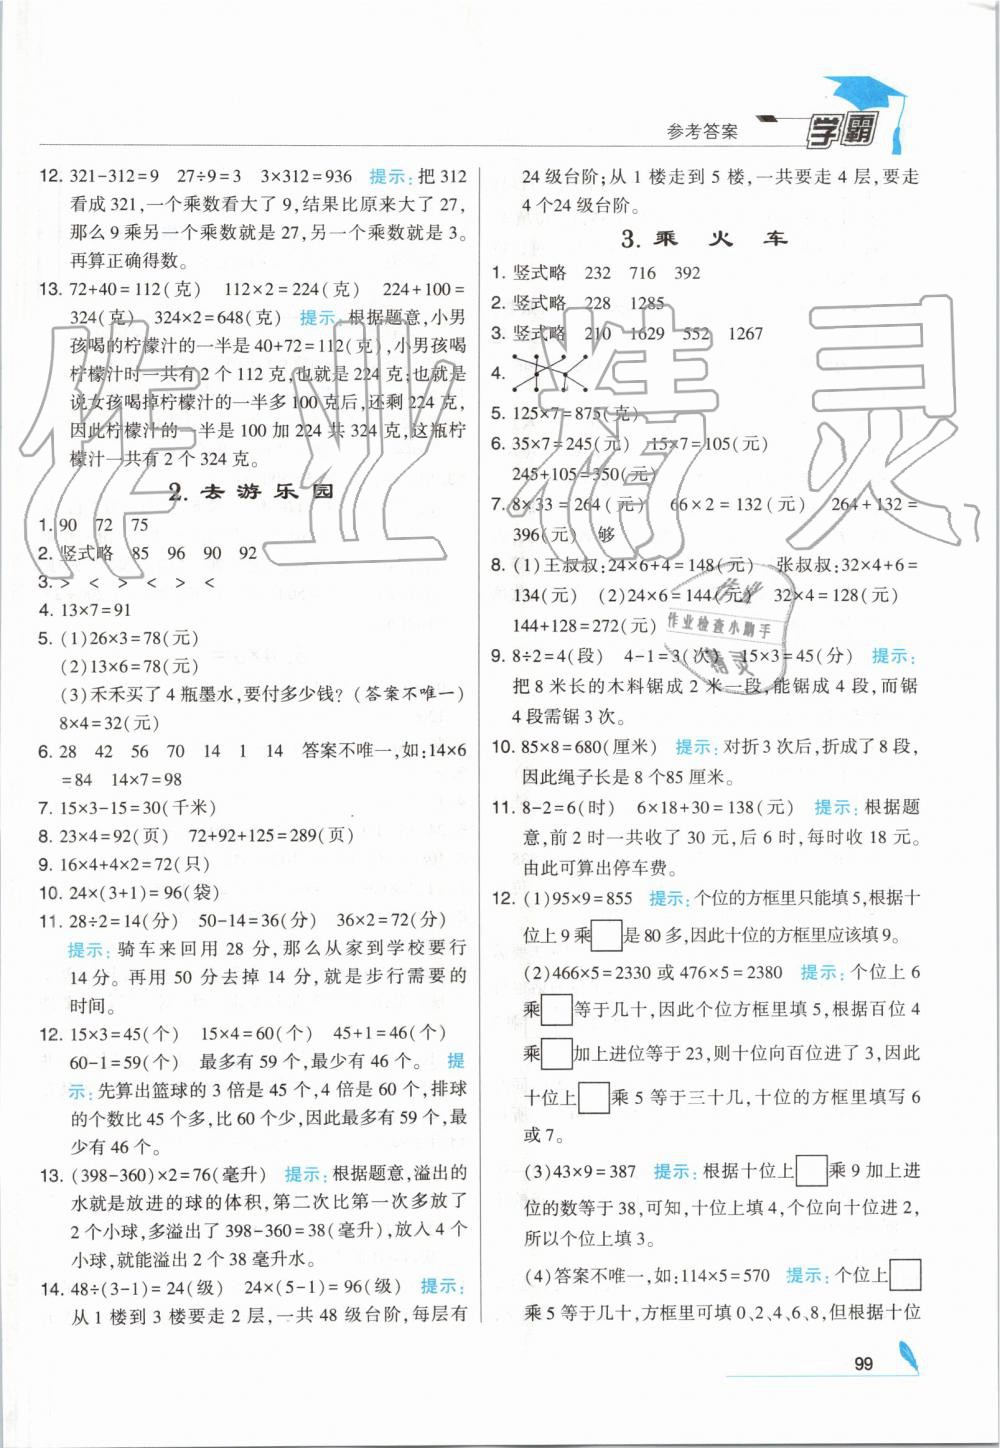 参考答案
学霸
12. 321-312=9 27÷9=3 3×312=936 提示:把 312
看成 321,一个乘数看大了 9,结果比原来大了 27,
那么 9 乘另一个乘数就是 27,另一个乘数就是 3。
再算正确得数。
13. 72+40=112(克) 112×2=224(克) 224+100=
324(克) 324×2=648(克) 提示:根据题意,小男
孩喝的柠檬汁的一半是 40+72=112(克),小男孩喝
柠檬汁时一共有 2 个 112 克,也就是 224 克;也就是
说女孩喝掉柠檬汁的一半多 100 克后,还剩 224 克,
因此柠檬汁的一半是 100 加 224 共 324 克,这瓶柠
檬汁一共有 2 个 324 克。
2. 去游乐园
1. 90 72 75
2. 竖式略 85 96 90 92
3. > < > < > <
4. 13×7=91
5. (1)26×3=78(元)
(2)13×6=78(元)
(3)禾禾买了 4 瓶墨水,要付多少钱?(答案不唯一)
8×4=32(元)
6. 28 42 56 70 14 1 14 答案不唯一,如:14×6
=84 14×7=98
7. 15×3-15=30(千米)
8. 23×4=92(页) 72+92+125=289(页)
9. 16×4+4×2=72(只)
10. 24×(3+1)=96(袋)
11. 28÷2=14(分) 50-14=36(分) 36×2=72(分)
提示:骑车来回用 28 分,那么从家到学校要行
14 分。再用 50 分去掉 14 分,就是步行需要的
时间。
12. 15×3=45(个) 15×4=60(个) 45+1=46(个)
60-1=59(个) 最多有 59 个,最少有 46 个。 提
示:先算出篮球的 3 倍是 45 个,4 倍是 60 个,排球
的个数比 45 个多,比 60 个少,因此最多有 59 个,最
少有 46 个。
13. (398-360)×2=76(毫升) 提示:根据题意,溢出的
水就是放进的球的体积,第二次比第一次多放了
2 个小球,多溢出了 398-360=38(毫升),放入 4 个
小球,就能溢出 2 个 38 毫升水。
14. 48÷(3-1)=24(级) 24×(5-1)=96(级) 提示:
从 1 楼到 3 楼要走 2 层,一共 48 级台阶,每层有
24 级台阶;从 1 楼走到 5 楼,一共要走 4 层,要走
4 个24 级台阶。
3. 乘火车
1. 竖式略 232 716 392
2. 竖式略 228 1285
3. 竖式略 210 1629 552 1267
4.
5. 125×7=875(克)
6. 35×7=245(元) 15×7=105(元)
245+105=350(元)
7. 8×33=264(元) 66×2=132(元) 264+132=
396(元) 够
8. (1)王叔叔:24×6+4=148(元) 张叔叔:32×4+6=
134(元) (2)24×6=144(元) 32×4=128(元)
144+128=272(元)
9. 8÷2=4(段) 4-1=3(次) 15×3=45(分) 提示:
把 8 米长的木料锯成 2 米一段,能锯成 4 段,而锯
4 段需锯 3 次。
10. 85×8=680(厘米) 提示:对折 3 次后,折成了 8 段,
因此绳子长是 8 个85 厘米。
11. 8-2=6(时) 6×18+30=138(元) 提示:根据题
意,前 2 时一共收了 30 元,后 6 时,每时收 18 元。
由此可算出停车费。
12. (1)95×9=855 提示:个位的方框里只能填5,根据十
位上 9 乘□是 80 多,因此十位的方框里应该填 9。
(2)466×5=2330 或 476×5=2380 提示:个位上 6
乘□等于几十,因此个位方框里填 5,根据百位 4
乘□加上进位等于 23,则十位向百位进了 3,因此
十位上□乘 5 等于三十几,十位的方框里填写 6
或 7。
(3)43×9=387 提示:根据十位上□乘 9 加上进
位的数等于 38,可知,十位上填 4,个位向十位进 2,
所以个位上填 3。
(4)答案不唯一,如:114×5=570 提示:个位上□
乘 5 等于几十,方框里可填 0、2、4、6、8,但根据十位
99
作业精灵
作业
作业检查小助手
精灵